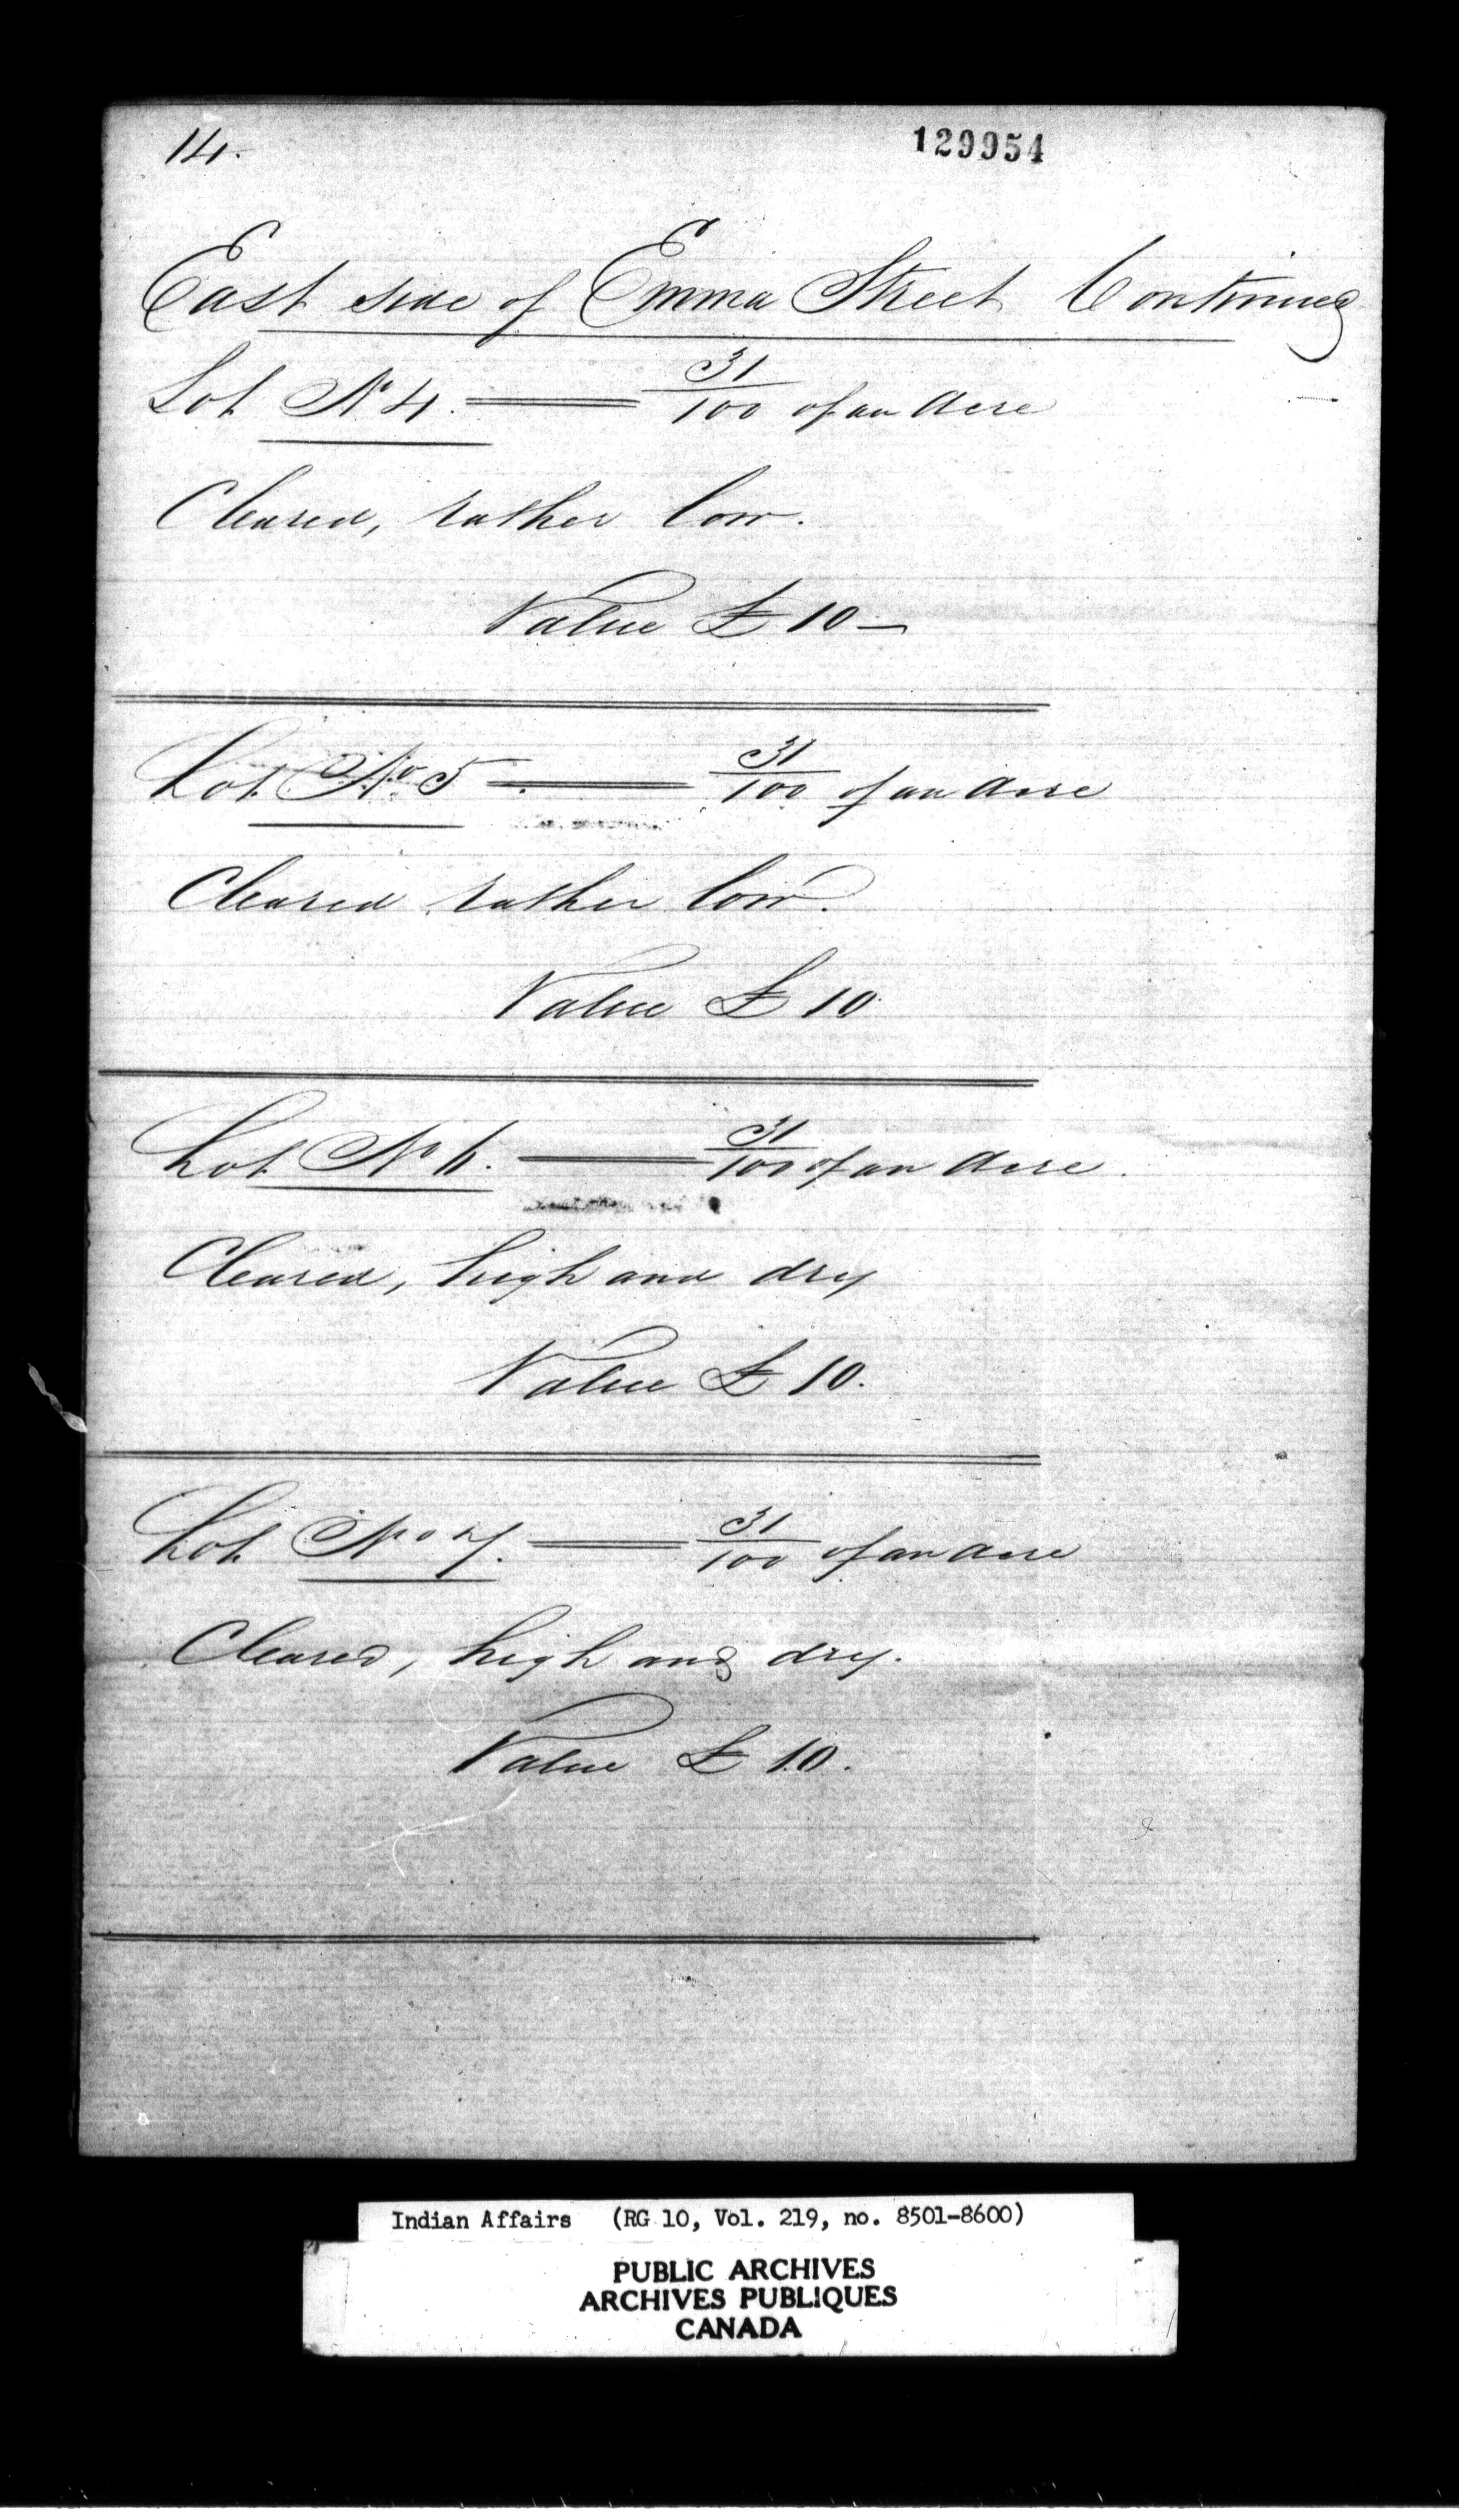 14.
129954
East side of Emma Street Continued
Lot No 4. 31/100 of an Acre
Cleared, rather low.
Value £ 10 —
Lot No 5 31/100 of an Acre
Cleared rather low.
Value £ 10
Lot No 6. 31/100 of an Acre.
Cleared, high and dry
Value £ 10.
Lot No 7. 31/100 of an Acre
Cleared, high and dry.
Value £ 10.
Indian Affairs (RG 10, Vol. 219, no. 8501-8600)
PUBLIC ARCHIVES
ARCHIVES PUBLIQUES
CANADA